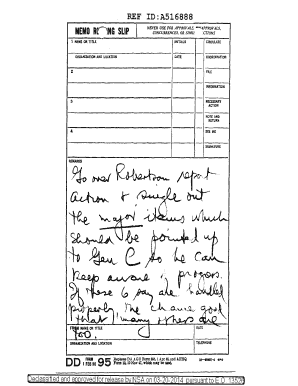 REF ID:A516888
MEMO ROUTING SLIP
NEVER USE FOR APPROVALS, DISAPPROVALS, CONCURRENCES, OR SIMILAR ACTIONS
1 NAME OR TITLE
INITIALS
CIRCULATE
ORGANIZATION AND LOCATION
DATE
COORDINATION
2
FILE
INFORMATION
3
NECESSARY ACTION
NOTE AND RETURN
4
SEE ME
SIGNATURE
REMARKS
Go over Robertson report
action & single out
the major items which
should be pointed up
to Gen C so he can
keep aware of progress.
If these 6 say are handled
properly the chance good
that many others are
too.
FROM NAME OR TITLE
DATE
ORGANIZATION AND LOCATION
TELEPHONE
DD FORM 95
1 FEB 50
Declassified and approved for release by NSA on 03-20-2014 pursuant to E.O. 1352